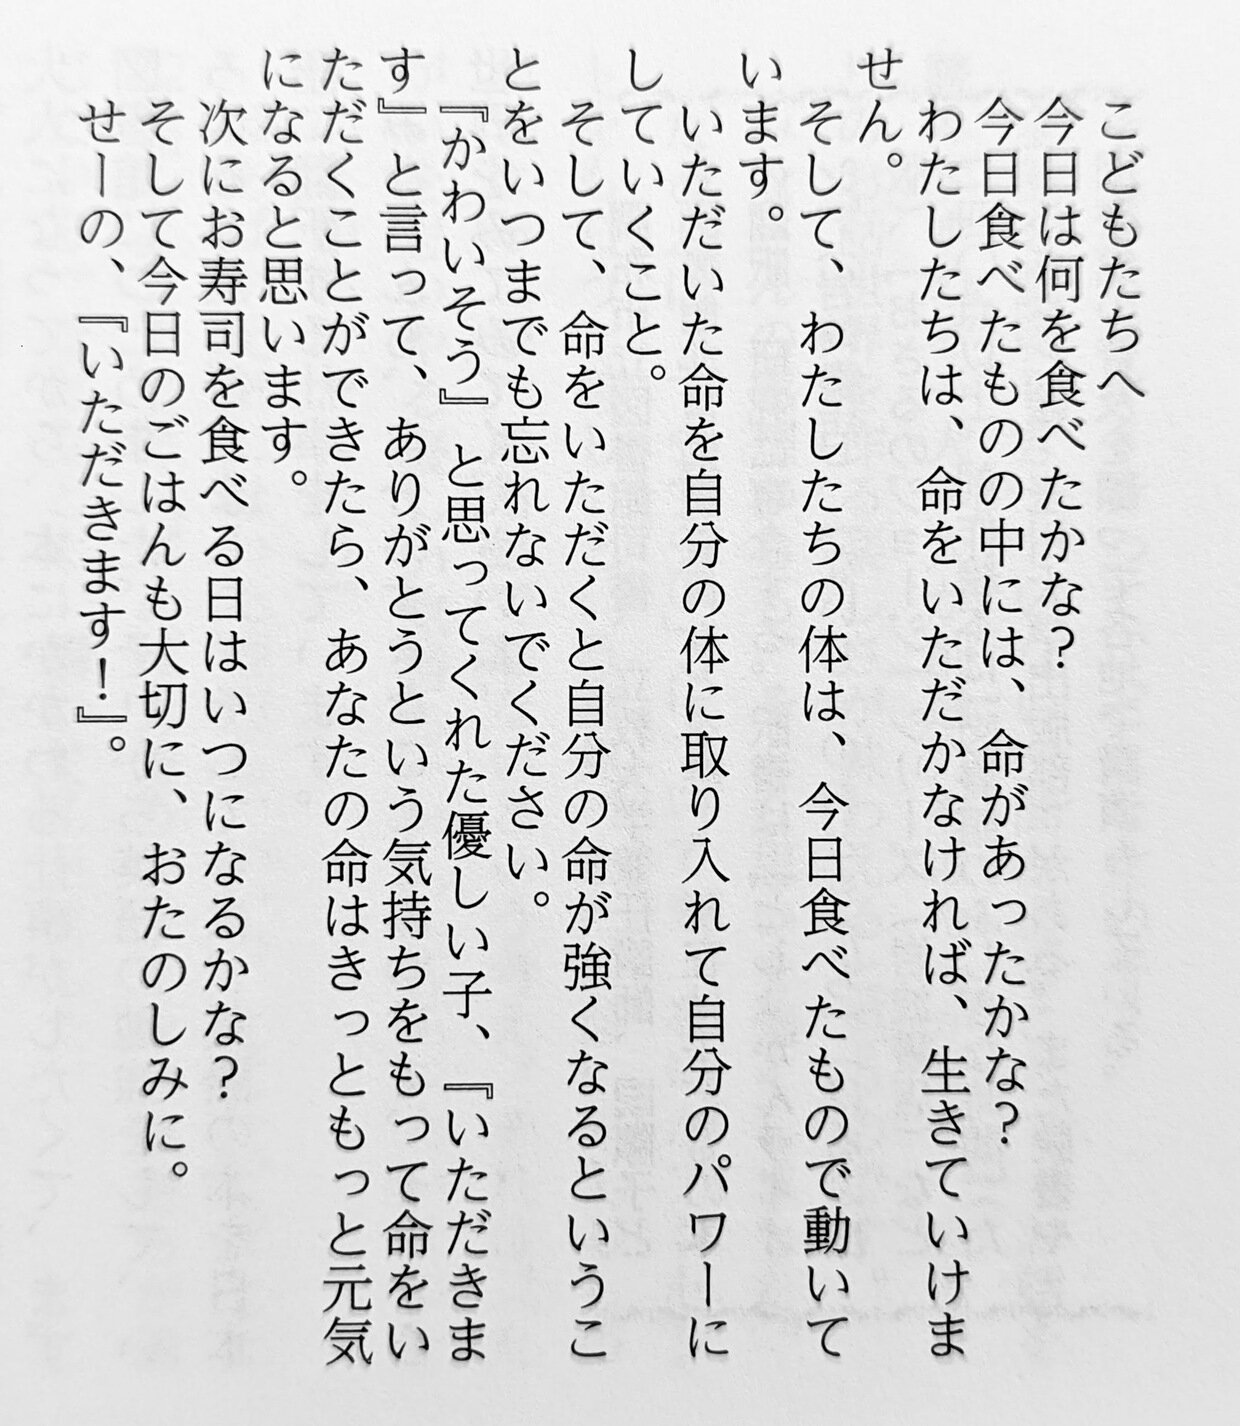 こどもたちへ
今日は何を食べたかな？
今日食べたものの中には、命があったかな？
わたしたちは、命をいただかなければ、生きていけま
せん。
そして、わたしたちの体は、今日食べたもので動いて
います。
いただいた命を自分の体に取り入れて自分のパワーに
していくこと。
そして、命をいただくと自分の命が強くなるというこ
とをいつまでも忘れないでください。
『かわいそう』と思ってくれた優しい子、『いただきま
す』と言って、ありがとうという気持ちをもって命をい
ただくことができたら、あなたの命はきっともっと元気
になると思います。
次にお寿司を食べる日はいつになるかな？
そして今日のごはんも大切に、おたのしみに。
せーの、『いただきます！』。